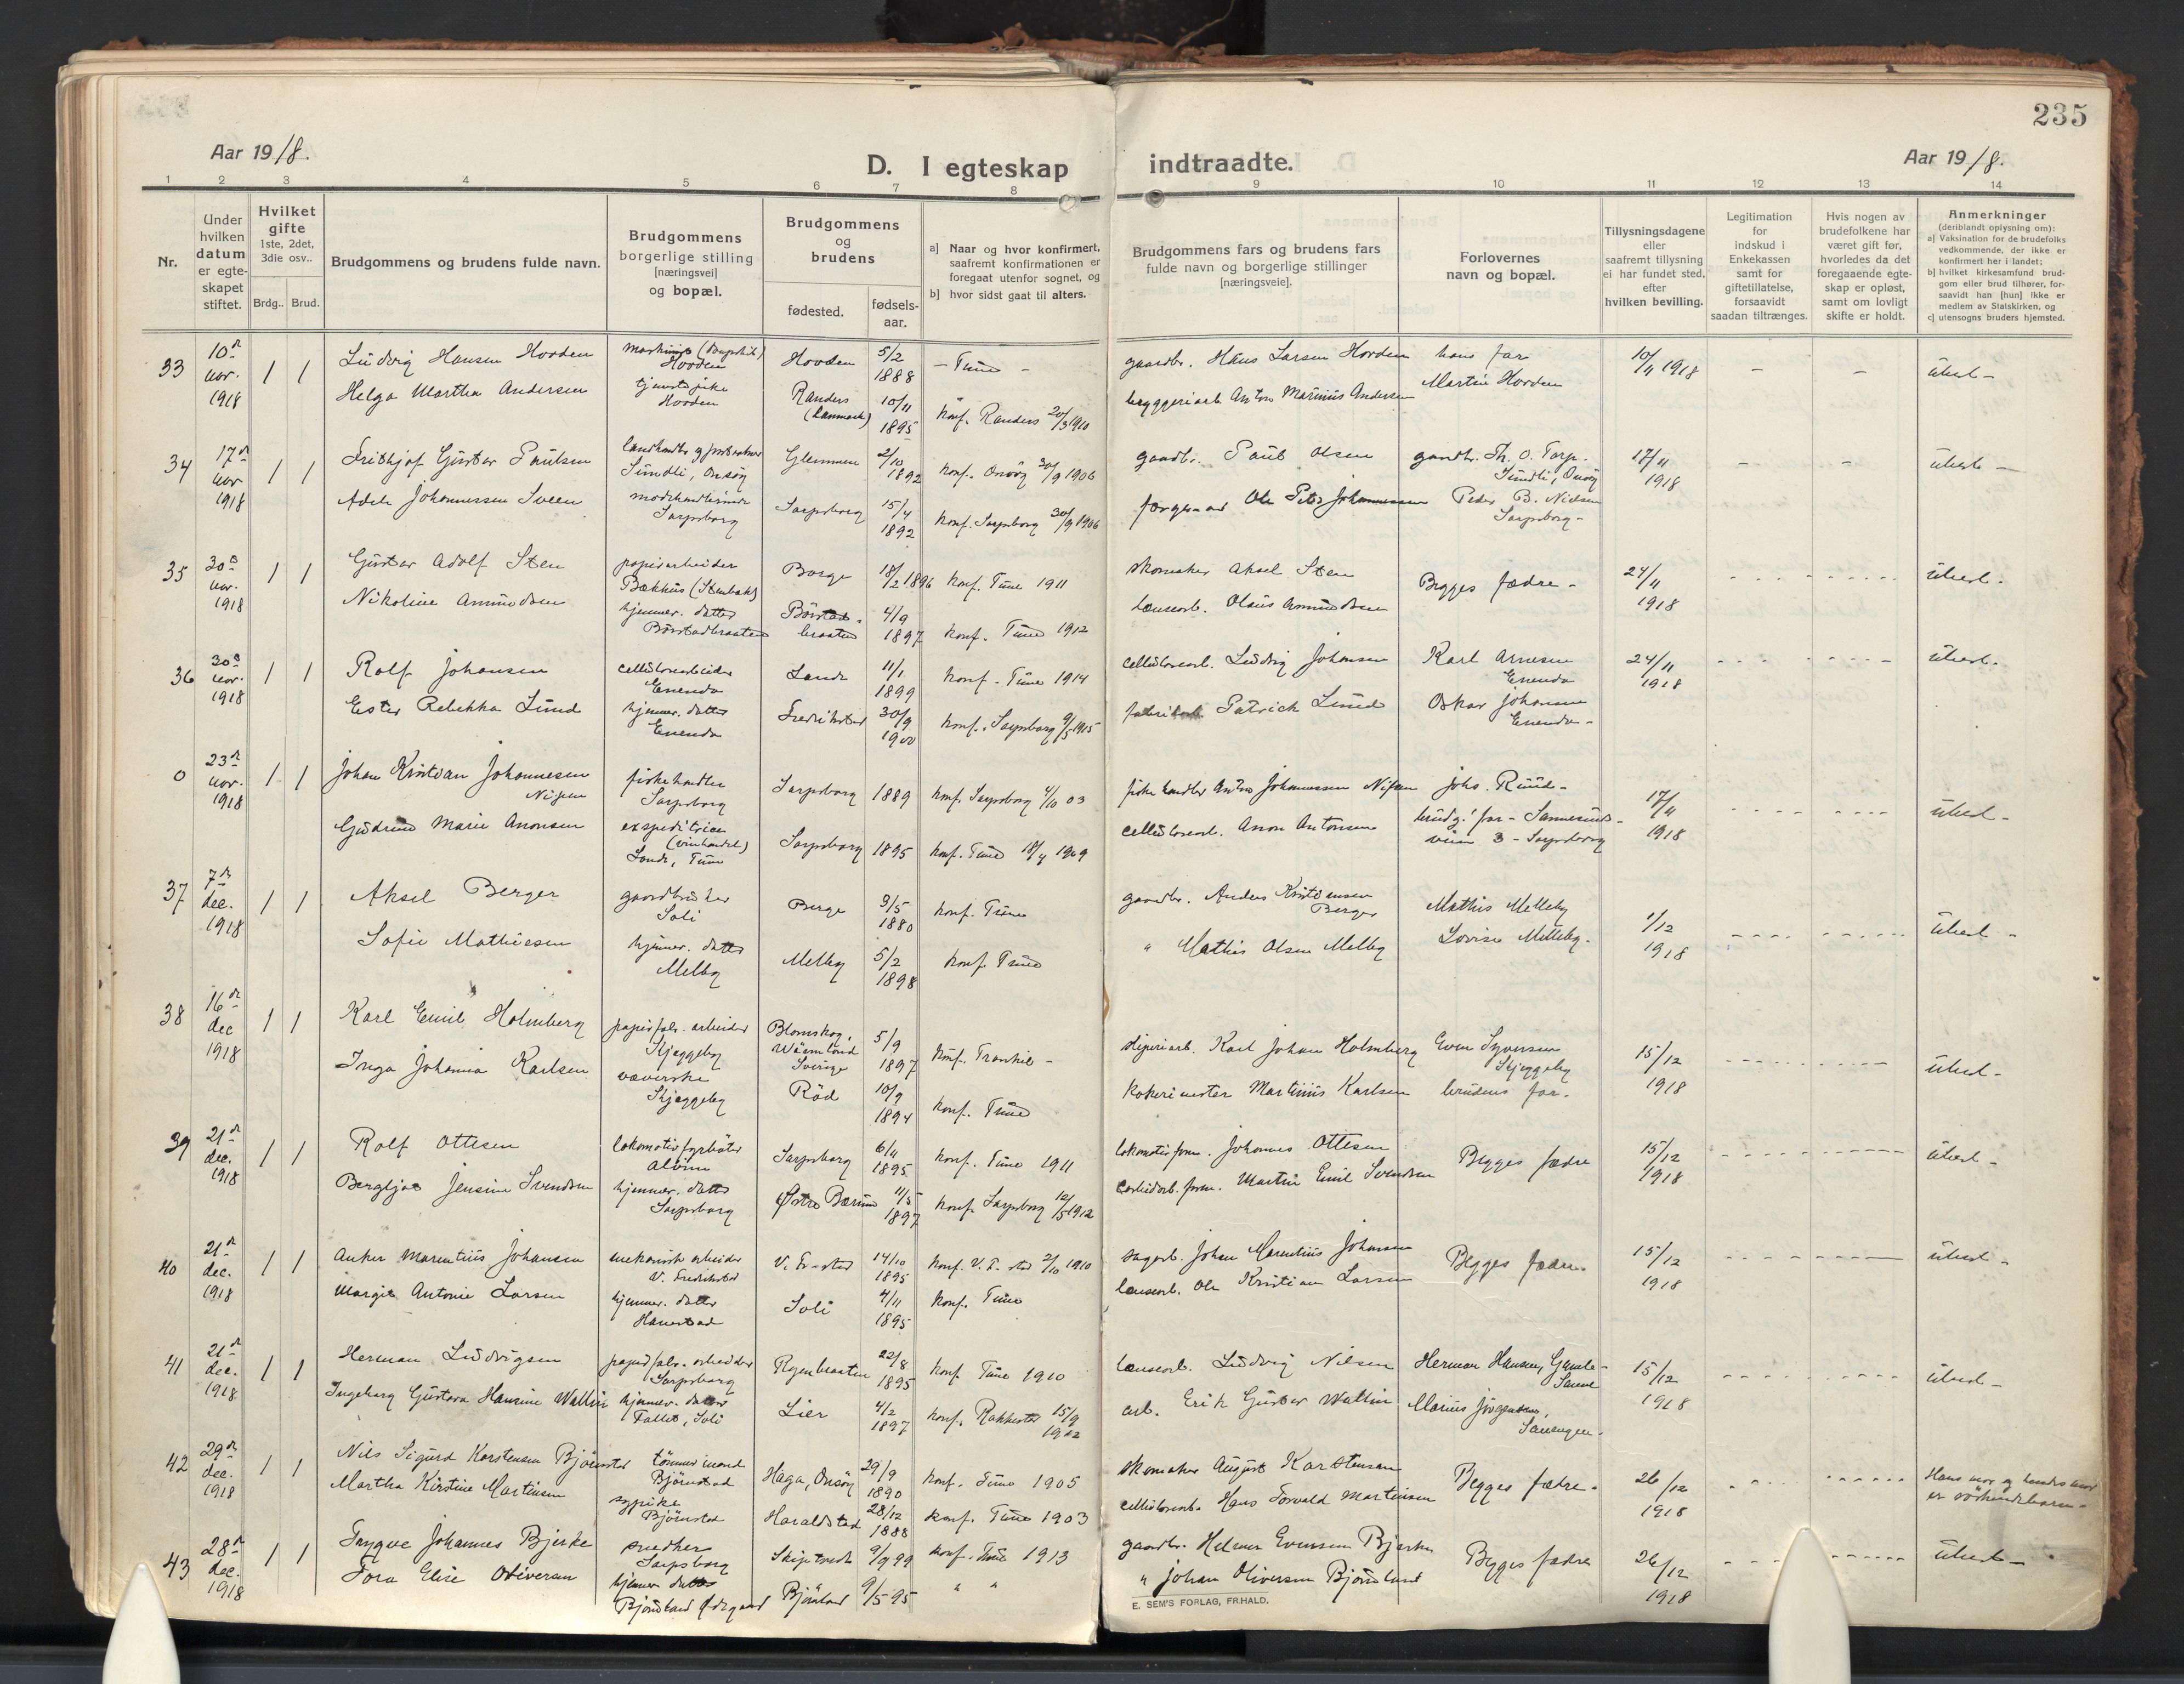 235
Aar 1918.
D. I egteskap indtraadte.
Aar 1918.
1 2 3 4 5 6 7 8 9 10 11 12 13 14
Nr.
Under hvilken datum er egteskapet stiftet.
Hvilket gifte 1ste, 2det, 3die osv..
Brdg.. Brud.
Brudgommens og brudens fulde navn.
Brudgommens borgerlige stilling [næringsvei] og bopæl.
Brudgommens og brudens
fødested.
fødsels-aar.
a] Naar og hvor konfirmert, saafremt konfirmationen er foregaat utenfor sognet, og
b] hvor sidst gaat til alters.
Brudgommens fars og brudens fars fulde navn og borgerlige stillinger [næringsveie].
Forlovernes navn og bopæl.
Tillysningsdagene eller saafremt tillysning ei har fundet sted, efter hvilken bevilling.
Legitimation for indskud i Enkekassen samt for giftetillatelse, forsaavidt saadan tiltrænges.
Hvis nogen av brudefolkene har været gift før, hvorledes da det foregaaende egteskap er opløst, samt om lovligt skifte er holdt.
Anmerkninger (deriblandt oplysning om):
a] Vaksination for de brudefolks vedkommende, der ikke er konfirmert her i landet;
b] hvilket kirkesamfund brudgom eller brud tilhører, forsaavidt han [hun] ikke er medlem av Statskirken, og
c] utensogns bruders hjemsted.
33 10de nov. 1918 1 1
Ludvig Hansen Hovden
Hovden
Hovden 5/2 1888
- Tune -
gaardbr. Hans Larsen Hovden
hans far
10/11 1918
Helga Martha Andersen
tjenestepike Hovden
Randers (Danmark) 10/11 1895
konf. Randers 20/3 1910
bryggeriarb. Anton Marinius Andersen
Martin Hovden
34 17de nov 1918 1 1
Frithjof Gustav Paulsen
Sundli, Onsøy
Glemmen 2/10 1892
konf. Onsøy 30/9 1906
gaardbr. Paul Olsen
gaardbr. Th. O. Torp. Sundli, Onsøy
17/11 1918
Adele Johannessen Sveen
modehandlerinde Sarpsborg
Sarpsborg 15/4 1892
konf. Sarpsborg 30/9 1906
Ole Peter Johannessen
Peder B. Nielsen Sarpsborg-
35 30te nov. 1918 1 1
Gustav Adolf Sten
papirarbeider Bækhus (Stenbæk)
Borge 18/2 1896
konf. Tune 1911
skomaker Aksel Sten
Begges fædre -
24/11 1918
Nikoline Amundsen
hjemmev. datter Börstadbraaten
Börstadbraaten 4/9 1897
konf. Tune 1912
lænsearb. Olaus Amundsen
36 30te nov. 1918 1 1
Rolf Johansen
cellulosearbeider Enenda
Lande 11/1 1899
konf - Tune 1914
cellulosearb. Ludvig Johansen
Karl Arnesen Enenda
24/11 1918
Ester Rebekka Lund
hjemmev. datter Enenda
Fredrikstad 30/9 1900
konf. Sarpsborg 9/5 1915
Patrick Lund
Oskar Johansen Enenda-
0 23de nov. 1918 1 1
Johan Kristian Johannesen Nissen
fiskehandler Sarpsborg
Sarpsborg 1889
konf. Sarpsborg 4/10 03
fiskehandler Anton Johannessen Nissen
Johs. Ruud-
17/11 1918
Gudrun Marie Aronsen
expeditrice (vinhandel) Lande, Tune
Sarpsborg 1895
konf. Tune 18/4 1909
cellulosearb. Aron Antonsen
brudg.' far - Sannesundsveien 3 - Sarpsborg
37 7de dec. 1918 1 1
Aksel Berger
gaardbruker Soli
Berge 3/5 1880
konf. Tune
gaardbr. Anders Kristensen Berger
Mathis Melleby
1/12 1918
Sofie Mathiesen
hjemmev. datter Melby
Melleby 5/2 1898
konf. Tune
" Mathis Olsen Melleby
Lovise Melleby.
38 16de dec 1918 1 1
Karl Emil Holmberg
papirfabr. arbeider Skjeggeby
Blomskog, Wärmland Sverige 5/9 1897
konf. Trankil -
sliperiarb. Karl Johan Holmberg
Even Syversen Skjeggeby
15/12 1918
Inga Johanna Karlsen
væverske Skjeggeby
Röd 10/9 1894
konf. Tune
kokerimester Martinius Karlsen
brudens far.
39 21de dec. 1918 1 1
Rolf Ottesen
lokomotivfyrböter Alvim
Sarpsborg 6/11 1895
konf. Tune 1911
lokomotivform. Johannes Ottesen
Begges fædre
15/12 1918
Bergljot Jensine Svendsen
hjemmev. datter Sarpsborg
Østre Bærum 11/5 1897
konf. Sarpsborg 12/5 1912
Martin Emil Svendsen
40 21de dec. 1918 1 1
Anker Marentius Johansen
mekanisk arbeider V. Fredrikstad
V. Fr-stad 14/10 1895
konf. V. F-stad 2/10 1910
sagarb. Johan Marentius Johansen
Begges fædre.
15/12 1918
Margit Antonie Larsen
hjemmev. datter Hanestad
Soli 4/11 1895
konf. Tune
lænsearb. Ole Kristian Larsen
41 21de dec. 1918 1 1
Herman Ludvigsen
papirfabr. arbeider Sarpsborg
Rygenbraaten 22/8 1895
konf Tune 1910
lænsearb. Ludvig Nilsen
Herman Hansen, Gamle-Sanne
15/12 1918
Ingeborg Gustava Hansine Wallin
hjemmev. datter Fallet, Soli
Lier 4/2 1897
konf. Rakkestad 15/9 1912
arb. Erik Gustav Wallin
Marius Jörgensen,
42 29de dec. 1918 1 1
Nils Sigurd Karstensen Björnstad
tömmermand Björnstad
Haga, Onsöy 29/9 1890
konf. Tune 1905
skomaker August Karstensen
Begges fædre.
26/12 1918
Hans mor og hendes mor er söskendebarn.
Martha Kirstine Martinsen
sypike Björnstad
Haraldstad 28/12 1888
konf. Tune 1903
cellulosearb. Hans Torvald Martinsen
43 28de dec. 1918 1 1
Trygve Johannes Bjerke
snedker Sarpsborg
Skiptvedt 9/9 99
konf. Tune 1913
gaardbr. Helmer Evensen Bjerke
Begges fædre
26/12 1918
Tora Elise Oliversen
hjemmev. datter Björnland Ödegaard
Björnland 9/5-95
" "
" Johan Oliversen Björnland
E. SEM'S FORLAG, FR.HALD.